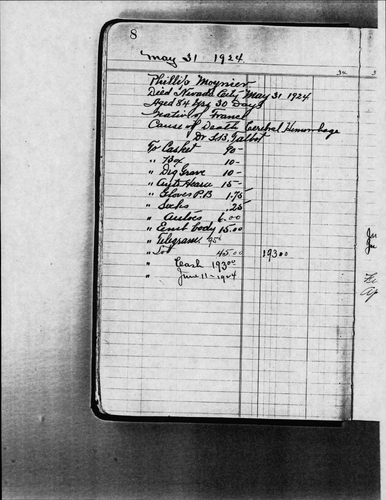 8
May 31 1924
Phillip Moynier
Died Nevada City May 31 1924
Aged 84 Yrs 30 Days
Native of France
Cause of Death Cerebral Hemorhage
Dr L.B. Talbot
To Casket 90-
" Box 10-
" Dig Grave 10-
" Auto Hearse 15-
" Gloves P.B 1.75
" Socks .25
" Autos 6.00
" Emb body 15.00
" Telegram
" Lot 45.00 193.00
" Cash 193.00
" June 11-1924